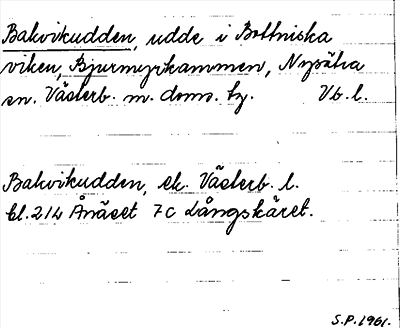 Bakvikudden, udde i Bottniska
viken, Bjurmyrkammen, Nysätra
sn. Västerb. m. doms. tg. Vb. l.
Bakvikudden, ek. Västerb. l.
bl. 214 Ånäset 7c Långskäret.
S.P. 1961.